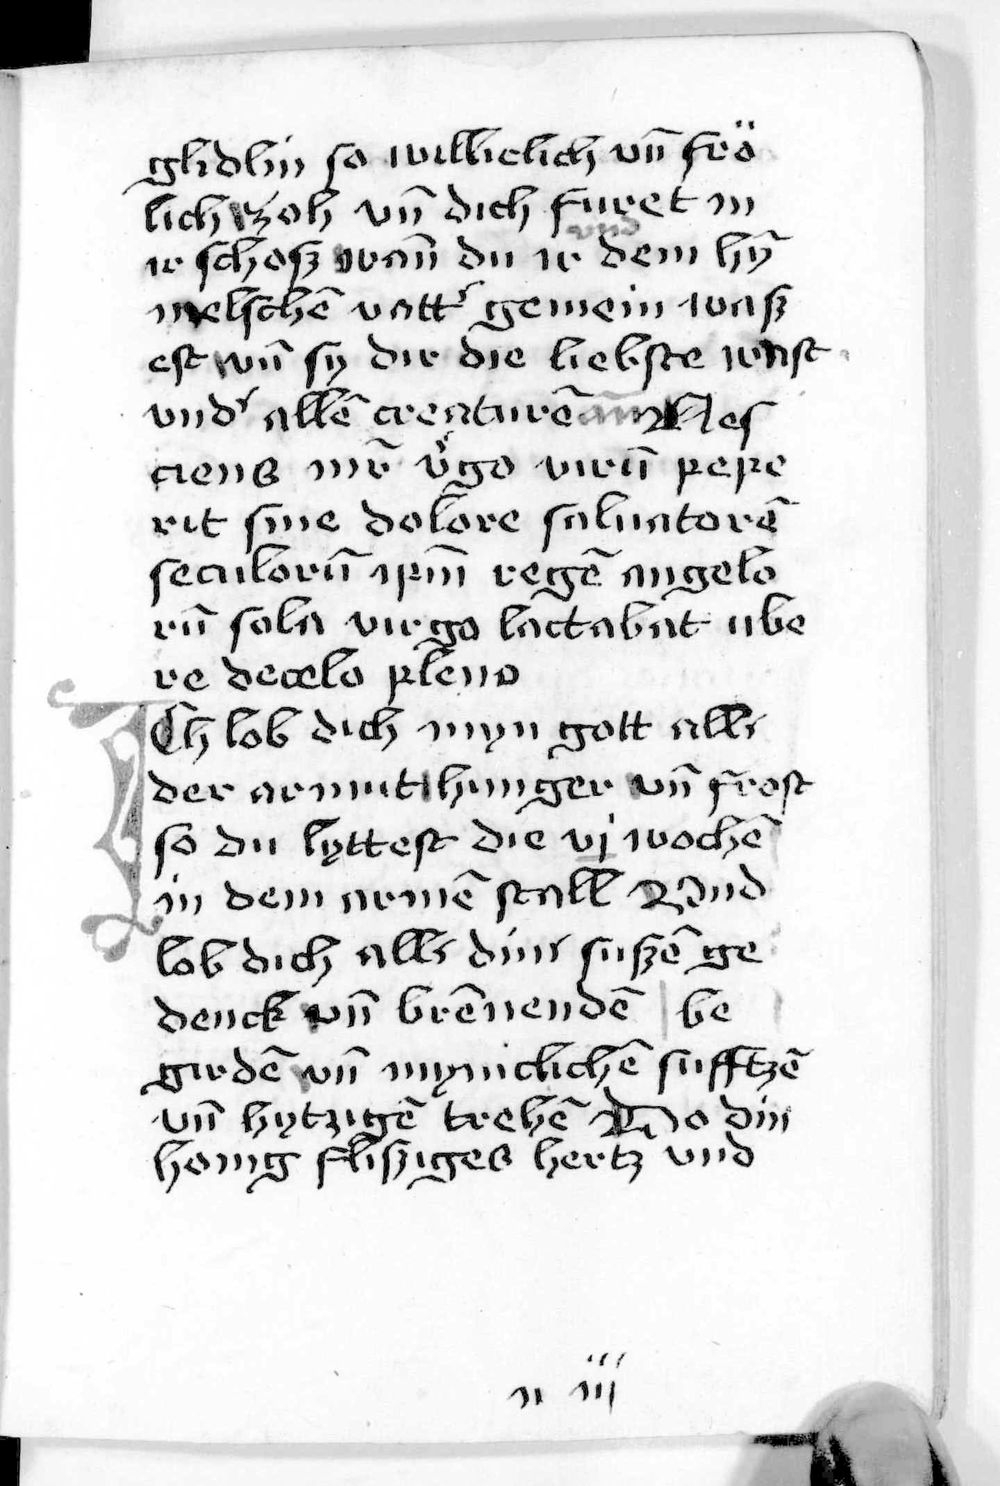 glidlin so willielich vñ frö
lich zoh vñ dich furet in
und
ir schosz wañ du ir dem hȳ
melschē vatt' gemein wasz
est vñ sy dir die liebste wast
vnd' allē creaturē Nes
ciens mr̄ v'go virū pepe
rit sine dolore saluatorē
seculorū ipm̄ regē angelo
rū sola virgo lactabat ube
re decelo pleno
Ich lob dich myn gott alls
der armut hunger vñ frost
so du lyttest die vj wochē
in dem armē stall Und
lob dich alls dins suszē ge
denck vñ brēnendē be
girdē vñ mynichlichē sufftzē
vñ hytzigē trehē So din
honig flisziges hertz vnd
n iij